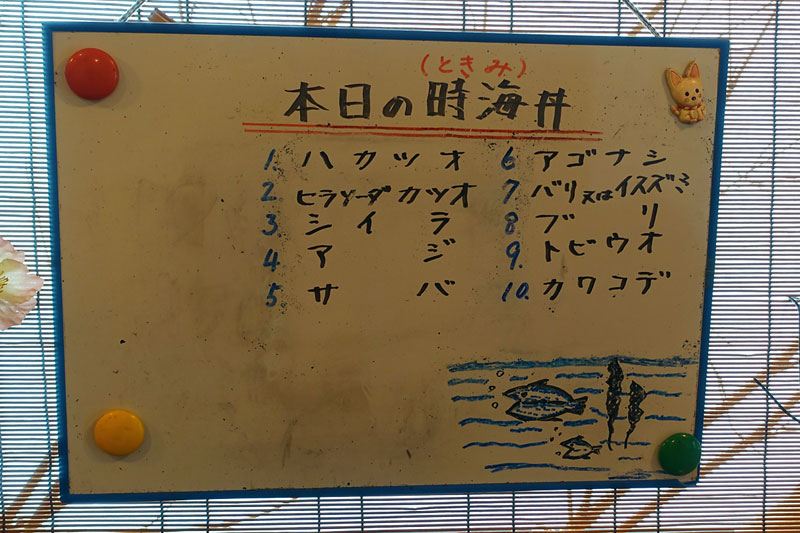 (ときみ)
本日の時海丼
1. ハカツオ
2. ヒラソーダカツオ
3. シイラ
4. アジ
5. サバ
6 アゴナシ
7 バリ又はイスズミ
8 ブリ
9. トビウオ
10. カワコデ